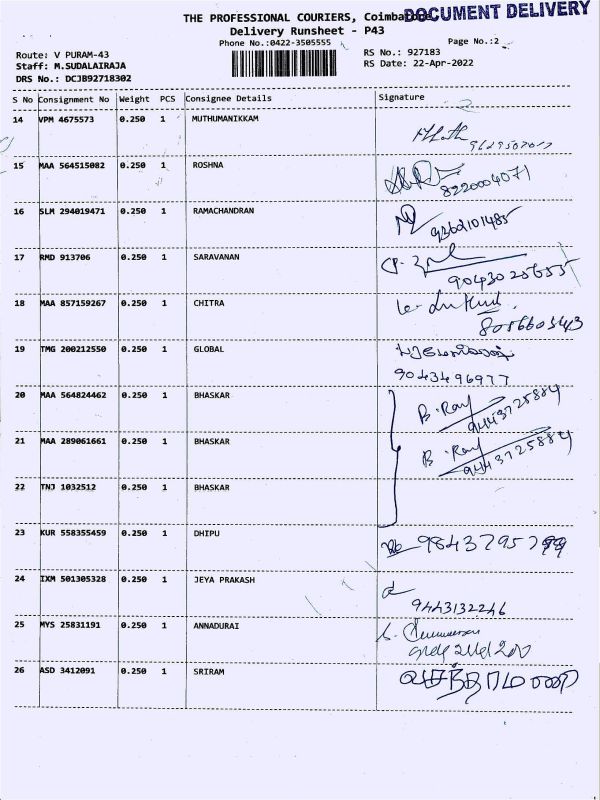 THE PROFESSIONAL COURIERS, Coimbatore
DOCUMENT DELIVERY
Delivery Runsheet - P43
Phone No.:0422-3505555
Page No.:2
Route: V PURAM-43
RS No.: 927183
Staff: M.SUDALAIRAJA
RS Date: 22-Apr-2022
DRS No.: DCJB92718302
S No Consignment No Weight PCS Consignee Details Signature
14 VPM 4675573 0.250 1 MUTHUMANIKKAM
15 MAA 564515082 0.250 1 ROSHNA
8220004071
16 SLM 294019471 0.250 1 RAMACHANDRAN
9362101485
17 RMD 913706 0.250 1 SARAVANAN
18 MAA 857159267 0.250 1 CHITRA
19 TMG 200212550 0.250 1 GLOBAL
9043496977
20 MAA 564824462 0.250 1 BHASKAR
B. Ray
9443725884
21 MAA 289061661 0.250 1 BHASKAR
B. Ray
9443725884
22 TNJ 1032512 0.250 1 BHASKAR
23 KUR 558355459 0.250 1 DHIPU
24 IXM 501305328 0.250 1 JEYA PRAKASH
9443132246
25 MYS 25831191 0.250 1 ANNADURAI
26 ASD 3412091 0.250 1 SRIRAM